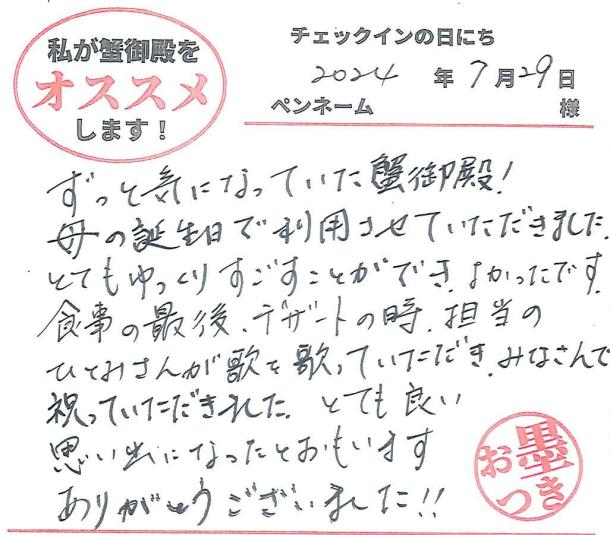 私が蟹御殿を
オススメ
します！
チェックインの日にち
2024 年 7月29日
ペンネーム 様
ずっと気になっていた蟹御殿!
母の誕生日で利用させていただきました.
とてもゆっくりすごすことができ、よかったです.
食事の最後、デザートの時、担当の
ひとみさんが歌を歌っていただき、みなさんで
祝っていただきました. とても良い
思い出になったとおもいます
ありがとうございました!!
お墨
つき